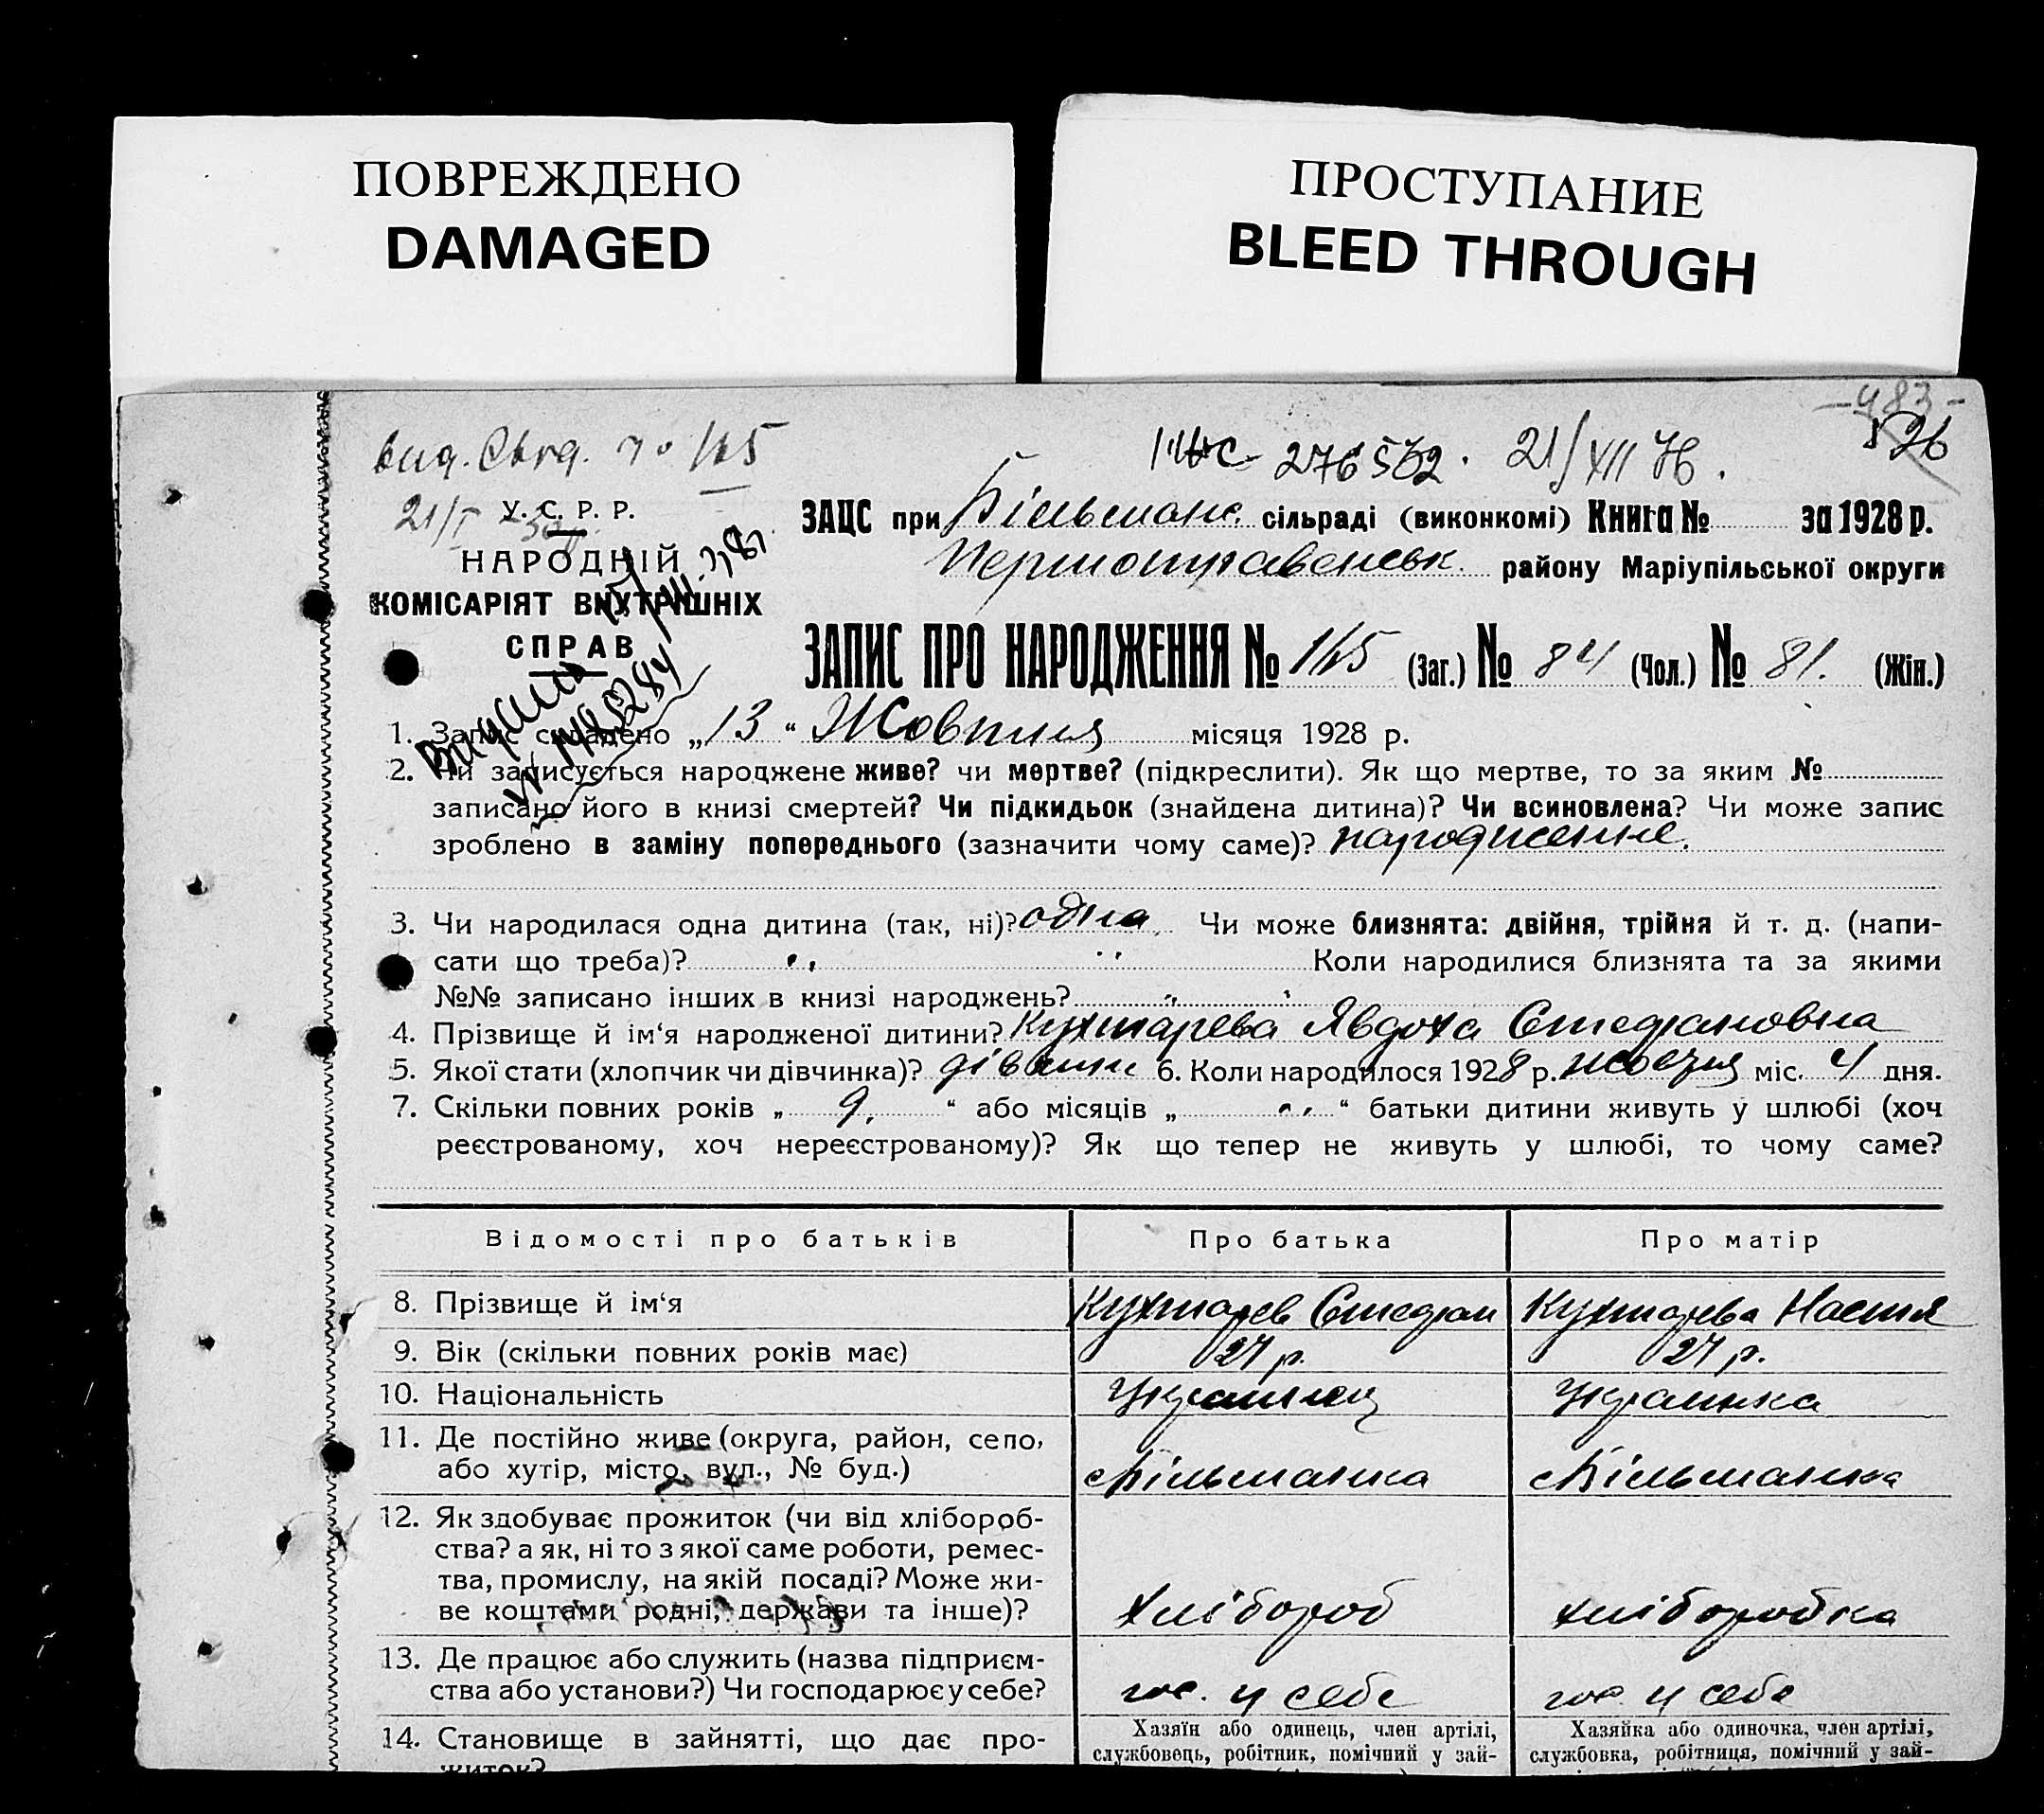 ПОВРЕЖДЕНО
DAMAGED
ПРОСТУПАНИЕ
BLEED THROUGH
-483-
вид. Свід. 165
276502. 21/XII 76.
21/I
У. С. Р. Р.
НАРОДНІЙ
КОМІСАРІЯТ ВНУТРІШНІХ
СПРАВ
ЗАЦС при Кільманс. сільраді (виконкомі) Книга № за 1928 р.
Першотравенськ. району Маріупільської округи
ЗАПИС ПРО НАРОДЖЕННЯ № 165 (Заг.) № 84 (Чол.) № 81. (Жін.)
1. Запис складено „13“ Жовтня місяця 1928 р.
2. Чи записується народжене живе? чи мертве? (підкреслити). Як що мертве, то за яким №
записано його в книзі смертей? Чи підкидьок (знайдена дитина)? Чи всиновлена? Чи може запис
зроблено в заміну попереднього (зазначити чому саме)? народження.
3. Чи народилася одна дитина (так, ні)? одна Чи може близнята: двійня, трійня й т. д. (напи-
сати що треба)? „ „ Коли народилися близнята та за якими
№№ записано інших в книзі народжень? „
4. Прізвище й ім‘я народженої дитини? Кухтарева Явдоха Стефановна
5. Якої стати (хлопчик чи дівчинка)? 6. Коли народилося 1928 р. жовтня міс. 4 дня.
7. Скільки повних років „ 9. “ або місяців „ „ “ батьки дитини живуть у шлюбі (хоч
реєстрованому, хоч нереєстрованому)? Як що тепер не живуть у шлюбі, то чому саме?
Відомості про батьків Про батька Про матір
8. Прізвище й ім‘я Кухтарев Стефан Кухтарева Настя
9. Вік (скільки повних років має) 27 р. 27 р.
10. Національність Українец Українка
11. Де постійно живе (округа, район, село,
або хутір, місто, вул., № буд.) Кільманка Кільманка
12. Як здобуває прожиток (чи від хлібороб-
ства? а як, ні то з якої саме роботи, ремес-
тва, промислу, на якій посаді? Може жи-
ве коштами родні, держави та інше)? хлібороб хліборобка
13. Де працює або служить (назва підприєм-
ства або установи?) Чи господарює у себе? гос. у себе гос. у себе
14. Становище в зайнятті, що дає про-
житок?
Хазяїн або одинець, член артілі,
службовець, робітник, помічний у зай-
Хазяйка або одиночка, член артілі,
службовка, робітниця, помічний у зай-